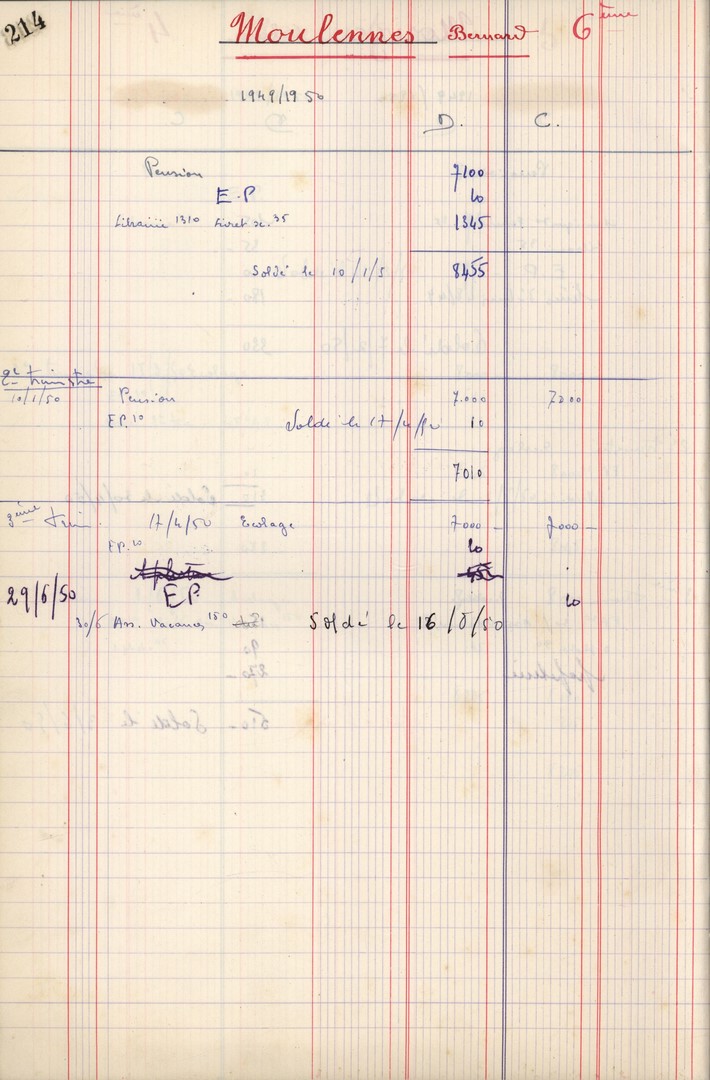 214
Moulennes Bernard 6ème
1949/1950
D. C.
Pension 7100
E.P 10
Librairie 1310 Livret sc. 35 1345
Soldé le 10/1/5 8455
2e trimestre
10/1/50 Pension 7.000 7200
EP. 10 Soldé le 17/4/50 10
7010
3ème Trim. 17/4/50 Ecolage 7000 - 7000 -
EP. 10 10
29/6/50 EP. 10
30/6 Ass. Vacances 150 Soldé le 16/8/50